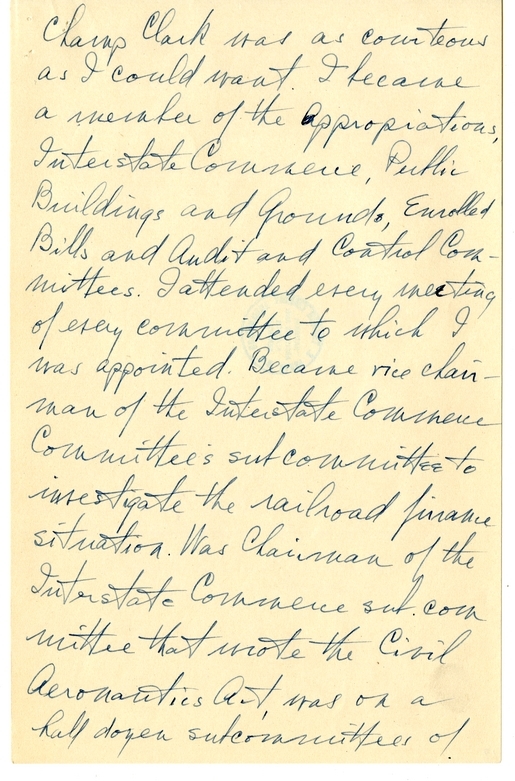 Champ Clark was as courteous
as I could want. I became
a member of the Appropiations,
Interstate Commerce, Public
Buildings and Grounds, Enrolled
Bills and Audit and Control Com-
mittees. I attended every meeting
of every committee to which I
was appointed. Became vice chair-
man of the Interstate Commerce
Committee's subcommittee to
investigate the railroad finance
situation. Was Chairman of the
Interstate Commerce sub. com
mittee that wrote the Civil
Aeronautics Act, was on a
half dozen subcommittees of